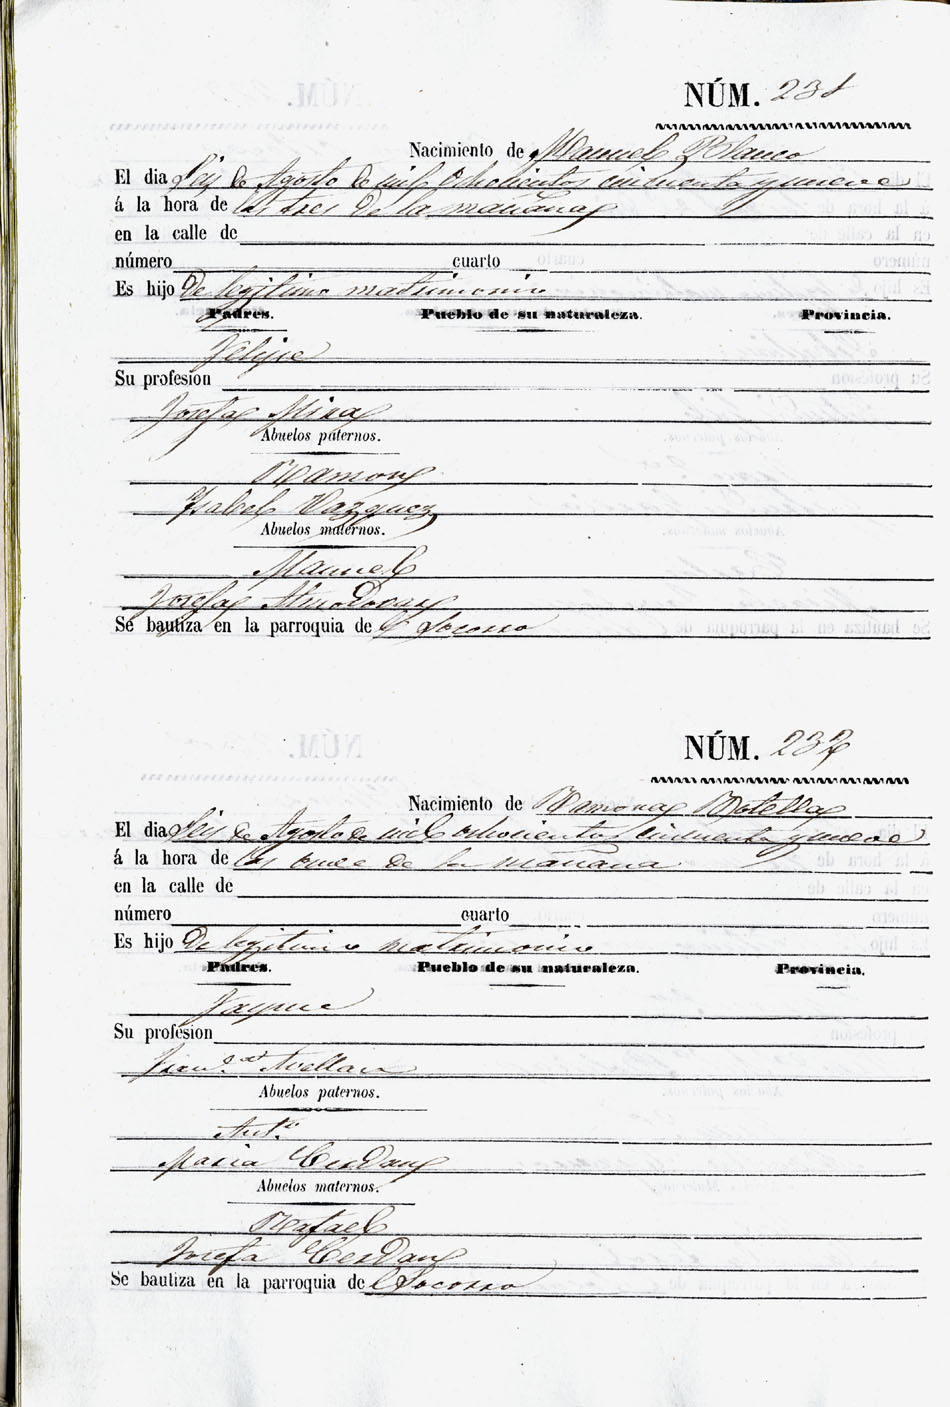 NÚM. 231
Nacimiento de Manuel Blanco
El dia Seis de Agosto de mil ochocientos cincuenta y nueve
á la hora de las tres de la mañana
en la calle de
número cuarto
Es hijo de legitimo matrimonio
Padres. Pueblo de su naturaleza. Provincia.
Felipe
Su profesion
Josefa Mira
Abuelos paternos.
Ramon
Ysabel Vazquez
Abuelos maternos.
Manuel
Josefa Almodovar
Se bautiza en la parroquia de l Socorro
NÚM. 232
Nacimiento de Ramona Botella
El dia Seis de Agosto de mil ochocientos cincuenta y nueve
á la hora de las once de la mañana
en la calle de
número cuarto
Es hijo de legitimo matrimonio
Padres. Pueblo de su naturaleza. Provincia.
Jayme
Su profesion
Fran.ca Avellan
Abuelos paternos.
Ant.º
Maria Cerdan
Abuelos maternos.
Rafael
Josefa Cerdan
Se bautiza en la parroquia de l Socorro